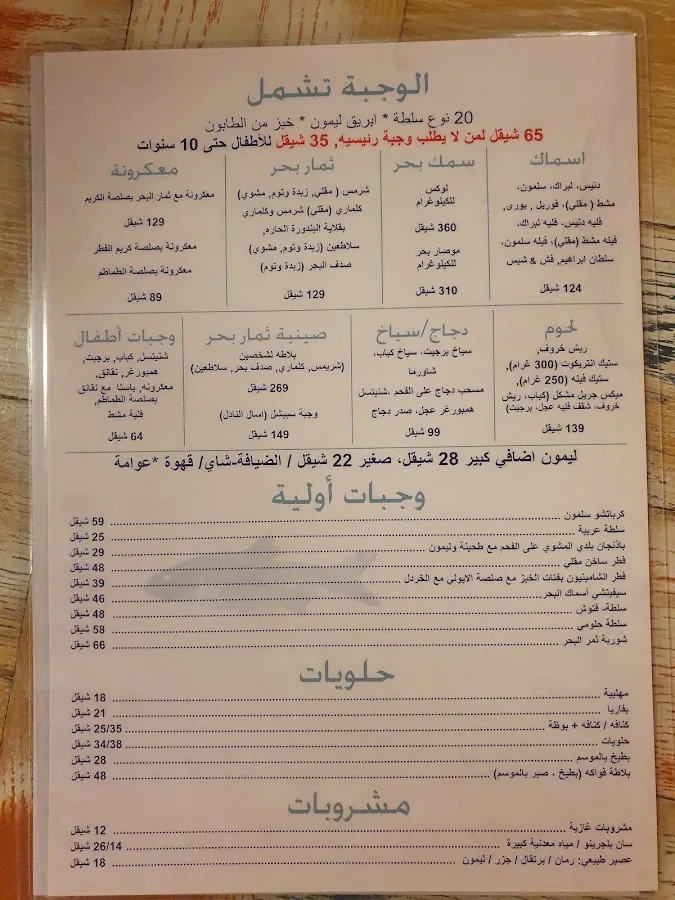 الوجبة تشمل
20 نوع سلطة * ابريق ليمون * خبز من الطابون
65 شيقل لمن لا يطلب وجبة رئيسيه, 35 شيقل للأطفال حتى 10 سنوات
اسماك
دنيس، لبراك، سلمون،
مشط (مقلي)، فوريل , بوري،
فليه دنيس، فليه لبراك،
فيله مشط (مقلي)، فيله سلمون،
سلطان ابراهيم, فش & شبس
124 شيقل
سمك بحر
لوكس
للكيلوغرام
360 شيقل
موصار بحر
للكيلوغرام
310 شيقل
ثمار بحر
شرمس ( مقلي, زبدة وثوم, مشوي)
كلماري (مقلي) شرمس وكلماري
بقلاية البندورة الحاره,
سلاطعين (زبدة وثوم, مشوي)
صدف البحر (زبدة وثوم)
129 شيقل
معكرونة
معكرونة مع ثمار البحر بصلصة الكريم
129 شيقل
معكرونة بصلصة كريم الفطر
معكرونة بصلصة الطماطم
89 شيقل
لحوم
ريش خروف,
ستيك انتريكوت (300 غرام),
ستيك فيله (250 غرام),
ميكس جريل مشكل (كباب, ريش
خروف, شقف فليه عجل, برجيت)
139 شيقل
دجاج /سياخ
سياخ برجيت، سياخ كباب،
شاورما
مسحب دجاج على الفحم ،شنيتسل
همبورغر عجل، صدر دجاج
99 شيقل
صينية ثمار بحر
بلاطه لشخصين
(شريمس, كلماري, صدف بحر, سلاطعين)
269 شيقل
وجبة سبيشل (اسال النادل)
149 شيقل
وجبات أطفال
شنيتسل, كباب, برجيت,
همبورغر, نقانق,
معكرونه, باستا مع نقانق
بصلصة الطماطم,
فلية مشط
64 شيقل
ليمون اضافي كبير 28 شيقل، صغير 22 شيقل / الضيافة-شاي/ قهوة *عوامة
وجبات أولية
كرباتشو سلمون 59 شيقل
سلطة عربية 25 شيقل
باذنجان بلدي المشوي على الفحم مع طحينة وليمون 29 شيقل
فطر ساخن مقلي 48 شيقل
فطر الشامبنيون بفتات الخبز مع صلصة الايولي مع الخردل 39 شيقل
سيفيتشي اسماك البحر 46 شيقل
سلطة- فتوش 48 شيقل
سلطة حلومي 58 شيقل
شوربة ثمر البحر 66 شيقل
حلويات
مهلبية 18 شيقل
بفاريا 21 شيقل
كنافه / كنافه + بوظة 25/35 شيقل
حلويات 34/38 شيقل
بطيخ بالموسم 28 شيقل
بلاطة فواكه (بطيخ ، صبر بالموسم) 48 شيقل
مشروبات
مشروبات غازية 12 شيقل
سان بلجرينو / مياه معدنية كبيرة 26/14 شيقل
عصير طبيعي: رمان / برتقال / جزر / ليمون 18 شيقل